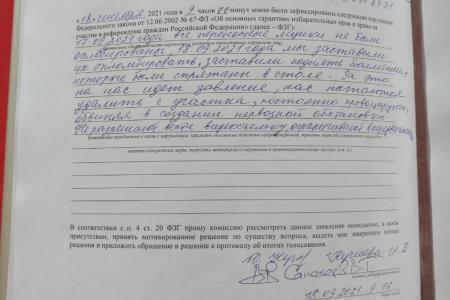 18 сентября 2021 года в 9 часов 00 минут мною были зафиксированы следующие нарушения
Федерального закона от 12.06.2002 № 67-ФЗ «Об основных гарантиях избирательных прав и права на
участие в референдуме граждан Российской Федерации» (далее – ФЗГ)
17.09.2021 года все переносные ящики не были
опломбированы. 18.09.2021 года мы заставили
их опломбировать, заставили поднять бюллетени,
которые были спрятаны в столе. За это
на нас идет давление, нас пытаются
удалить с участка, постоянно провоцируют,
обвиняя в создании нервозной обстановки.
Не разрешают вести видеосъемку, ограничивают
В соответствии с п. 4 ст. 20 ФЗГ прошу комиссию рассмотреть данное заявление немедленно, в моём
присутствии, принять мотивированное решение по существу вопроса, выдать мне заверенную копию
решения и приложить обращение и решение к протоколу об итогах голосования.
18.09.2021